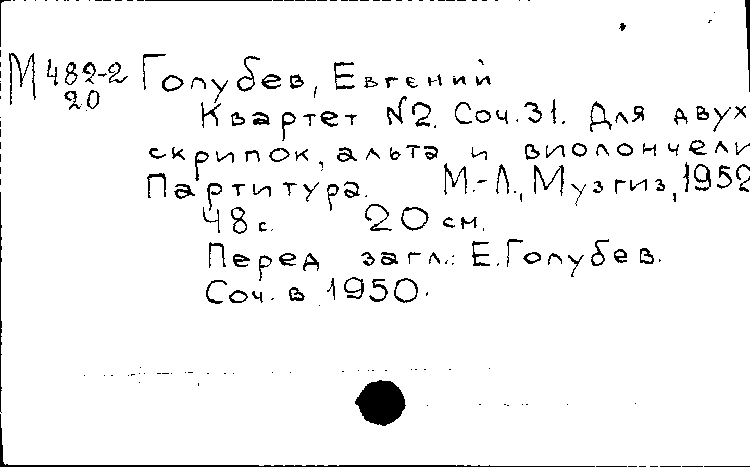 М 482-2 Голубев, Евгений
20
Квартет N2. Соч. 31. Для двух
скрипок, альта и виолончели
Партитура. М.-Л., Музгиз, 1952
48 с. 20 см.
Перед загл.: Е. Голубев.
Соч. в 1950.